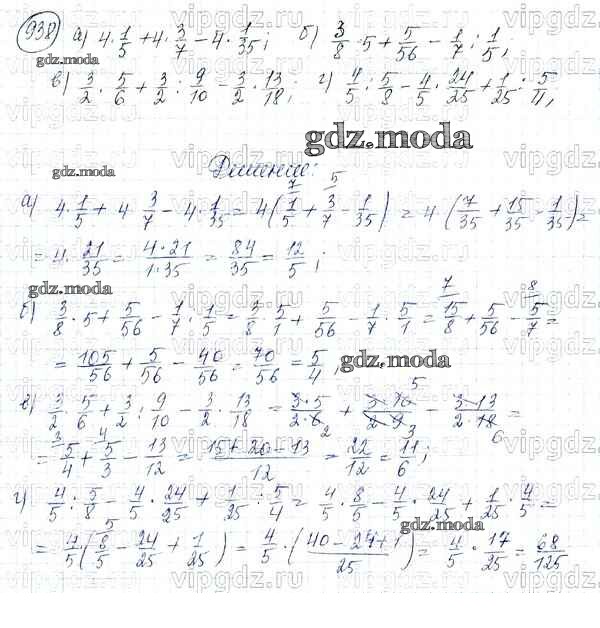 938) а) 4·1/5 + 4·3/7 − 4·1/35; б) 3/8·5 + 5/56 − 1/7 : 1/5;
в) 3/2·5/6 + 3/2 : 9/10 − 3/2·13/18; г) 4/5 : 5/8 − 4/5·24/25 + 1/25 : 5/4,
gdz.moda
gdz.moda
gdz.moda
Решение:
а) 4·1/5 + 4·3/7 − 4·1/35 = 4(1/5 + 3/7 − 1/35) = 4·(7/35 + 15/35 − 1/35) =
= 4·21/35 = 4·21/1·35 = 84/35 = 12/5;
gdz.moda
б) 3/8·5 + 5/56 − 1/7 : 1/5 = 3/8·5/1 + 5/56 − 1/7·5/1 = 15/8 + 5/56 − 5/7 =
= 105/56 + 5/56 − 40/56 = 70/56 = 5/4,
gdz.moda
в) 3/2·5/6 + 3/2 : 9/10 − 3/2·13/18 = 3·5/2·6 + 3·10/2·9 − 3·13/2·18 =
= 5/4 + 5/3 − 13/12 = 15+20−13/12 = 22/12 = 11/6;
г) 4/5 : 5/8 − 4/5·24/25 + 1/25 : 5/4 = 4/5·8/5 − 4/5·24/25 + 1/25·4/5 =
gdz.moda
= 4/5(8/5 − 24/25 + 1/25) = 4/5·(40−24+1/25) = 4/5·17/25 = 68/125
vipgdz.ru